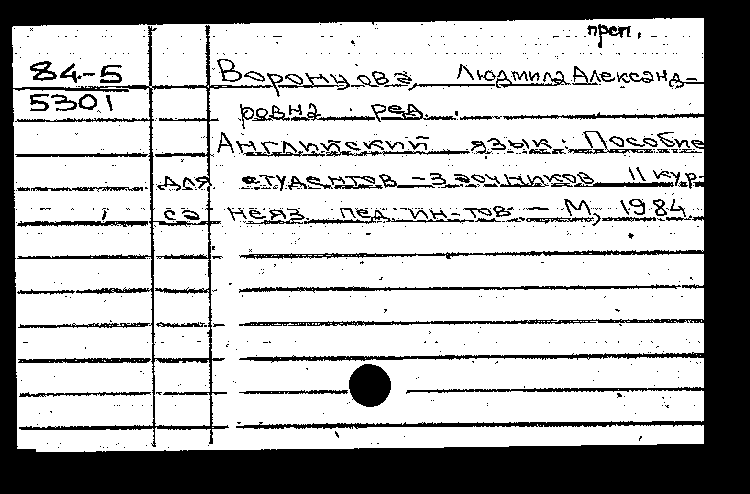 преп.
84-5
5301
Воронцова, Людмила Александ-
ровна ред.
Английский язык: Пособие
для студентов-заочников II кур-
са неяз. пед. ин-тов. - М, 1984